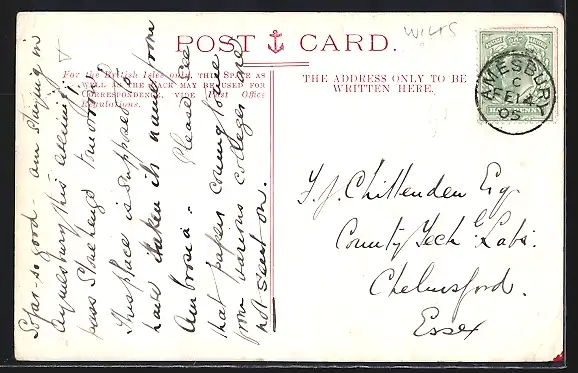 POST CARD.
WILTS
For the British Isles only, THIS SPACE AS
WELL AS THE BACK MAY BE USED FOR
CORRESPONDENCE, VIDE Post Office
Regulations.
THE ADDRESS ONLY TO BE
WRITTEN HERE.
AMESBURY
C
FE 14
05
So far - so good - am staying in
Amesbury this evening &
pass Stonehenge tomorrow.
This place is supposed to
have taken its name from
Ambrosia. Please see
that papers coming to me
from various colleges are
not sent on.
F. J. Chittenden Esq.
County Tech. Labs.
Chelmsford.
Essex